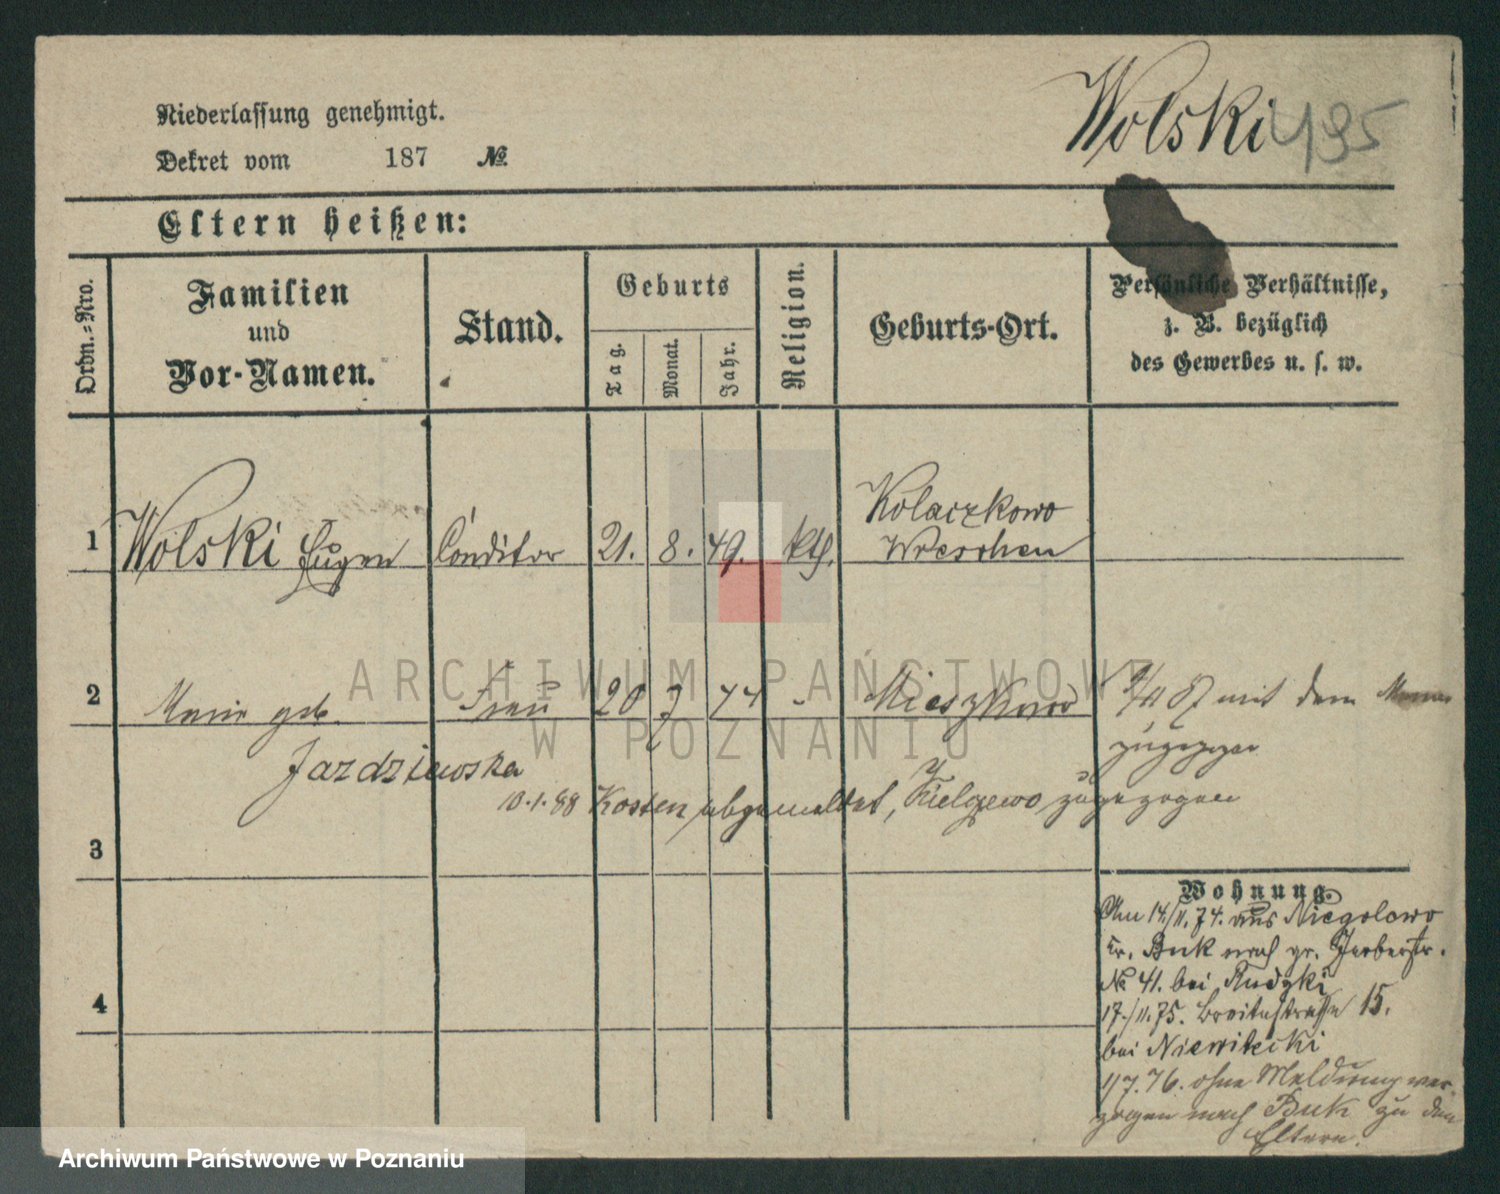 Niederlassung genehmigt.
Wolski 495
Dekret vom 187 No.
Eltern heißen:
Ordn.=Nro.
Familien
und
Vor-Namen.
Stand.
Geburts
Tag.
Monat.
Jahr.
Religion.
Geburts-Ort.
Persönliche Verhältnisse,
z. B. bezüglich
des Gewerbes u. s. w.
1 Wolski Eugen Conditor 21. 8. 49. kth. Kolaczkowo
Wreschen
2 Marie geb. Frau 20 7 - Mieszkowo
/4 87 mit dem Manne
zugezogen
Jazdziewska
10.1.88 Kosten abgemeldet, zugezogen
3
Wohnung.
Am 14./11.74. aus Niegolewo
Kr. Buk nach gr. Gerberstr.
No 41. bei Rudzki
17./11.75. Breitestrasse 15.
bei Niewitecki
1/7.76. ohne Meldung ver-
zogen nach Buk zu den
Eltern.
4
ARCHIWUM PAŃSTWOWE
W POZNANIU
Archiwum Państwowe w Poznaniu